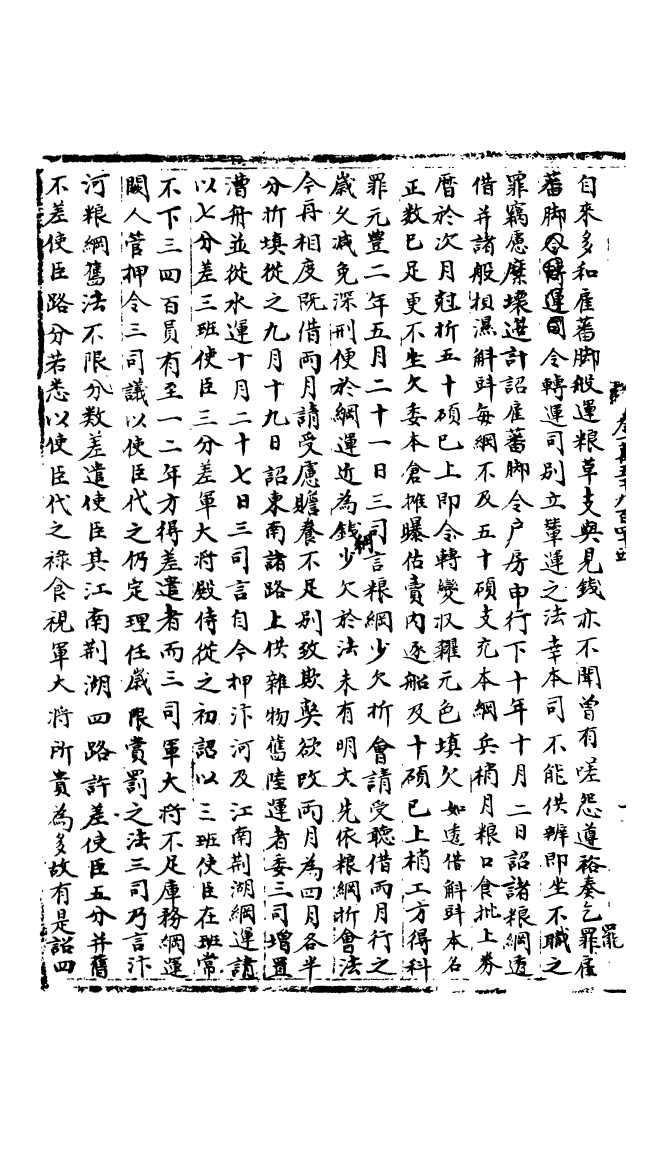 自來多和雇蕃脚般運粮草支與見錢亦不聞曾有嗟怨遵裕奏乞罷雇
蕃脚令轉運司令轉運司别立輦運之法幸本司不能供辦即坐不職之
罪竊慮糜壞邊計詔雇蕃脚令户房申行下十年十月二日詔諸粮綱透
借并諸般損濕斛㪷每綱不及五十碩支充本綱兵梢月粮口食批上券
曆於次月尅折五十碩已上即令轉變収糴元色填欠如透借斛㪷本名
正数已足更不生欠委本倉攤曝估賣内逐船及十碩已上梢工方得科
罪元豐二年五月二十一日三司言粮綱少欠折會請受聽借兩月行之
歲久减免深刑便於綱運近為錢綱少欠於法未有明文先依粮綱折會法
今再相度既借兩月請受慮贍養不足别致欺弊欲改兩月為四月各半
分折填從之九月十九日詔東南諸路上供雜物舊陸運者委三司增置
漕舟並從水運十月二十七日三司言自今押汴河及江南荆湖綱運請
以七分差三班使臣三分差軍大將殿侍從之初詔以三班使臣在班常
不下三四百員有至一二年方得差遣者而三司軍大將不足庫務綱運
闕人管押令三司議以使臣代之仍定理任歲限賞罰之法三司乃言汴
河粮綱舊法不限分数差遣使臣其江南荆湖四路許差使臣五分并舊
不差使臣路分若悉以使臣代之禄食視軍大將所貴為多故有是詔四